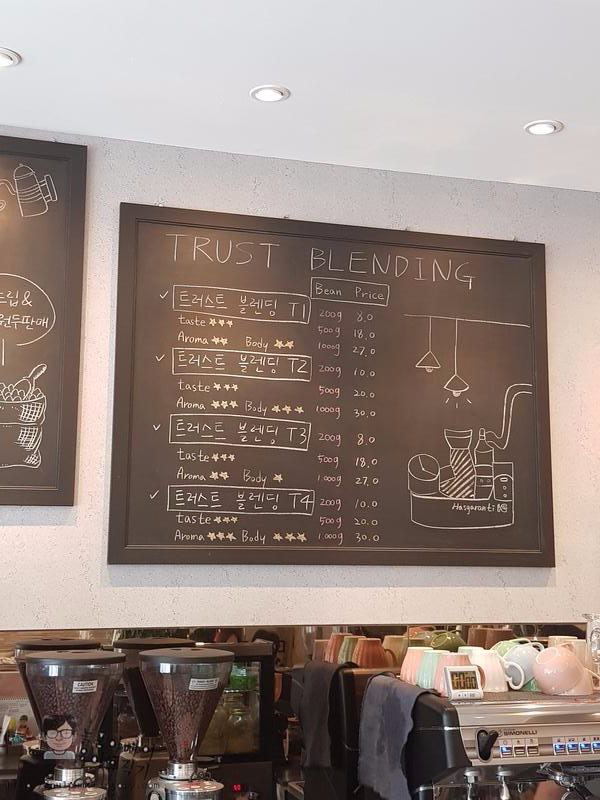 드립&
원두판매
TRUST BLENDING
Bean Price
트러스트 블렌딩 T1 200g 8.0
taste ★★★ 500g 18.0
Aroma ★★ Body ★★ 1000g 27.0
트러스트 블렌딩 T2 200g 10.0
taste ★★★ 500g 20.0
Aroma ★★★ Body ★★★ 1000g 30.0
트러스트 블렌딩 T3 200g 8.0
taste ★★★ 500g 18.0
Aroma ★★ Body ★ 1,000g 27.0
트러스트 블렌딩 T4 200g 10.0
taste ★★★ 500g 20.0
Aroma ★★★ Body ★★★ 1.000g 30.0
Hasgaranti
CAUTION
SIMONELLI